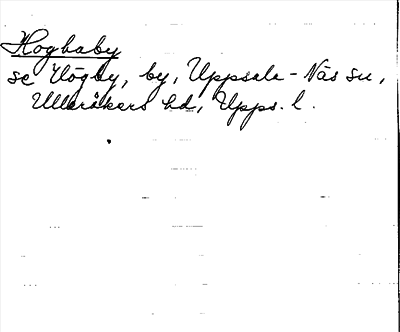 Hogbaby
se Högby, by, Uppsala-Näs sn,
Ulleråkers hd, Upps. l.